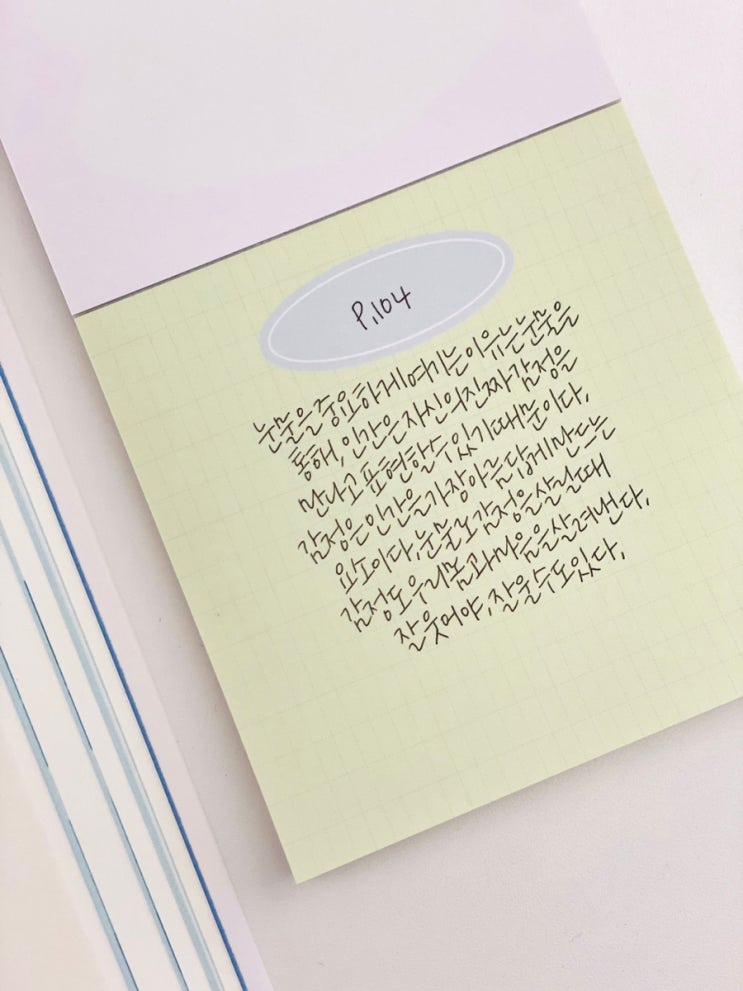 P.104
눈물을 중요하게 여기는 이유는 눈물을
통해, 인간은 자신의 진짜 감정을
만나고 표현할 수 있기 때문이다.
감정은 인간을 가장 아름답게 만드는
요소이다. 눈물로 감정을 살릴 때
감정도 우리 몸과 마음을 살려낸다.
잘 웃어야, 잘 울 수도 있다.